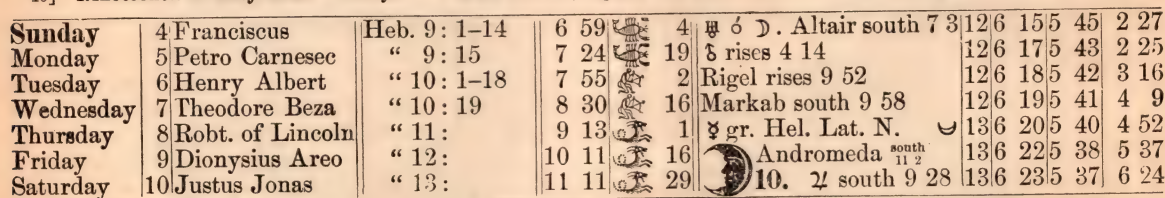 Sunday 4 Franciscus Heb. 9: 1–14 6 59 4 ♅ ☌ ☽. Altair south 7 3 12 6 15 5 45 2 27
Monday 5 Petro Carnesec " 9: 15 7 24 19 ♄ rises 4 14 12 6 17 5 43 2 25
Tuesday 6 Henry Albert " 10: 1–18 7 55 2 Rigel rises 9 52 12 6 18 5 42 3 16
Wednesday 7 Theodore Beza " 10: 19 8 30 16 Markab south 9 58 12 6 19 5 41 4 9
Thursday 8 Robt. of Lincoln " 11: 9 13 1 ☿ gr. Hel. Lat. N. 13 6 20 5 40 4 52
Friday 9 Dionysius Areo " 12: 10 11 16 Andromeda south 11 2 13 6 22 5 38 5 37
Saturday 10 Justus Jonas " 13: 11 11 29 10. ♃ south 9 28 13 6 23 5 37 6 24